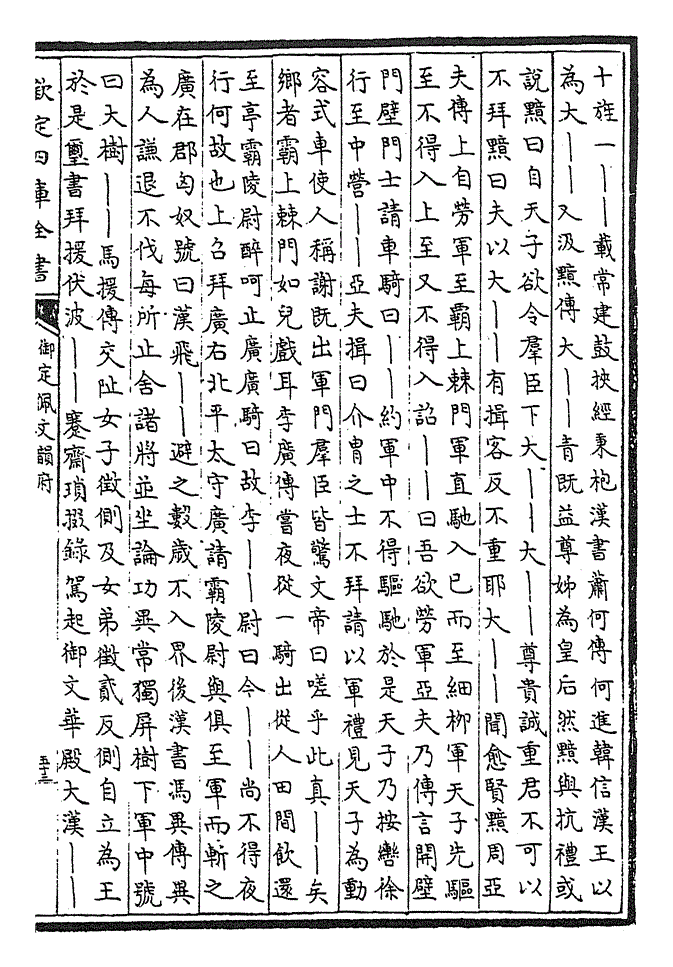 十旌一｜｜載常建鼓挾經秉枹漢書蕭何傳何進韓信漢王以
為大｜｜又汲黯傳大｜｜青既益尊姊為皇后然黯與抗禮或
說黯曰自天子欲令羣臣下大｜｜大｜｜尊貴誠重君不可以
不拜黯曰夫以大｜｜有揖客反不重耶大｜｜聞愈賢黯周亞
夫傳上自勞軍至霸上棘門軍直馳入已而至細柳軍天子先驅
至不得入上至又不得入詔｜｜曰吾欲勞軍亞夫乃傳言開壁
門壁門士請車騎曰｜｜約軍中不得驅馳於是天子乃按轡徐
行至中營｜｜亞夫揖曰介胄之士不拜請以軍禮見天子為動
容式車使人稱謝既出軍門羣臣皆驚文帝曰嗟乎此真｜｜矣
鄉者霸上棘門如兒戲耳李廣傳嘗夜從一騎出從人田間飲還
至亭霸陵尉醉呵止廣廣騎曰故李｜｜尉曰今｜｜尚不得夜
行何故也上召拜廣右北平太守廣請霸陵尉與俱至軍而斬之
廣在郡匈奴號曰漢飛｜｜避之數歲不入界後漢書馮異傳異
為人謙退不伐每所止舍諸將並坐論功異常獨屏樹下軍中號
曰大樹｜｜馬援傳交阯女子徵側及女弟徵貳反側自立為王
於是璽書拜援伏波｜｜蹇齋瑣掇錄駕起御文華殿大漢｜｜
欽定四庫全書
御定佩文韻府
五十三